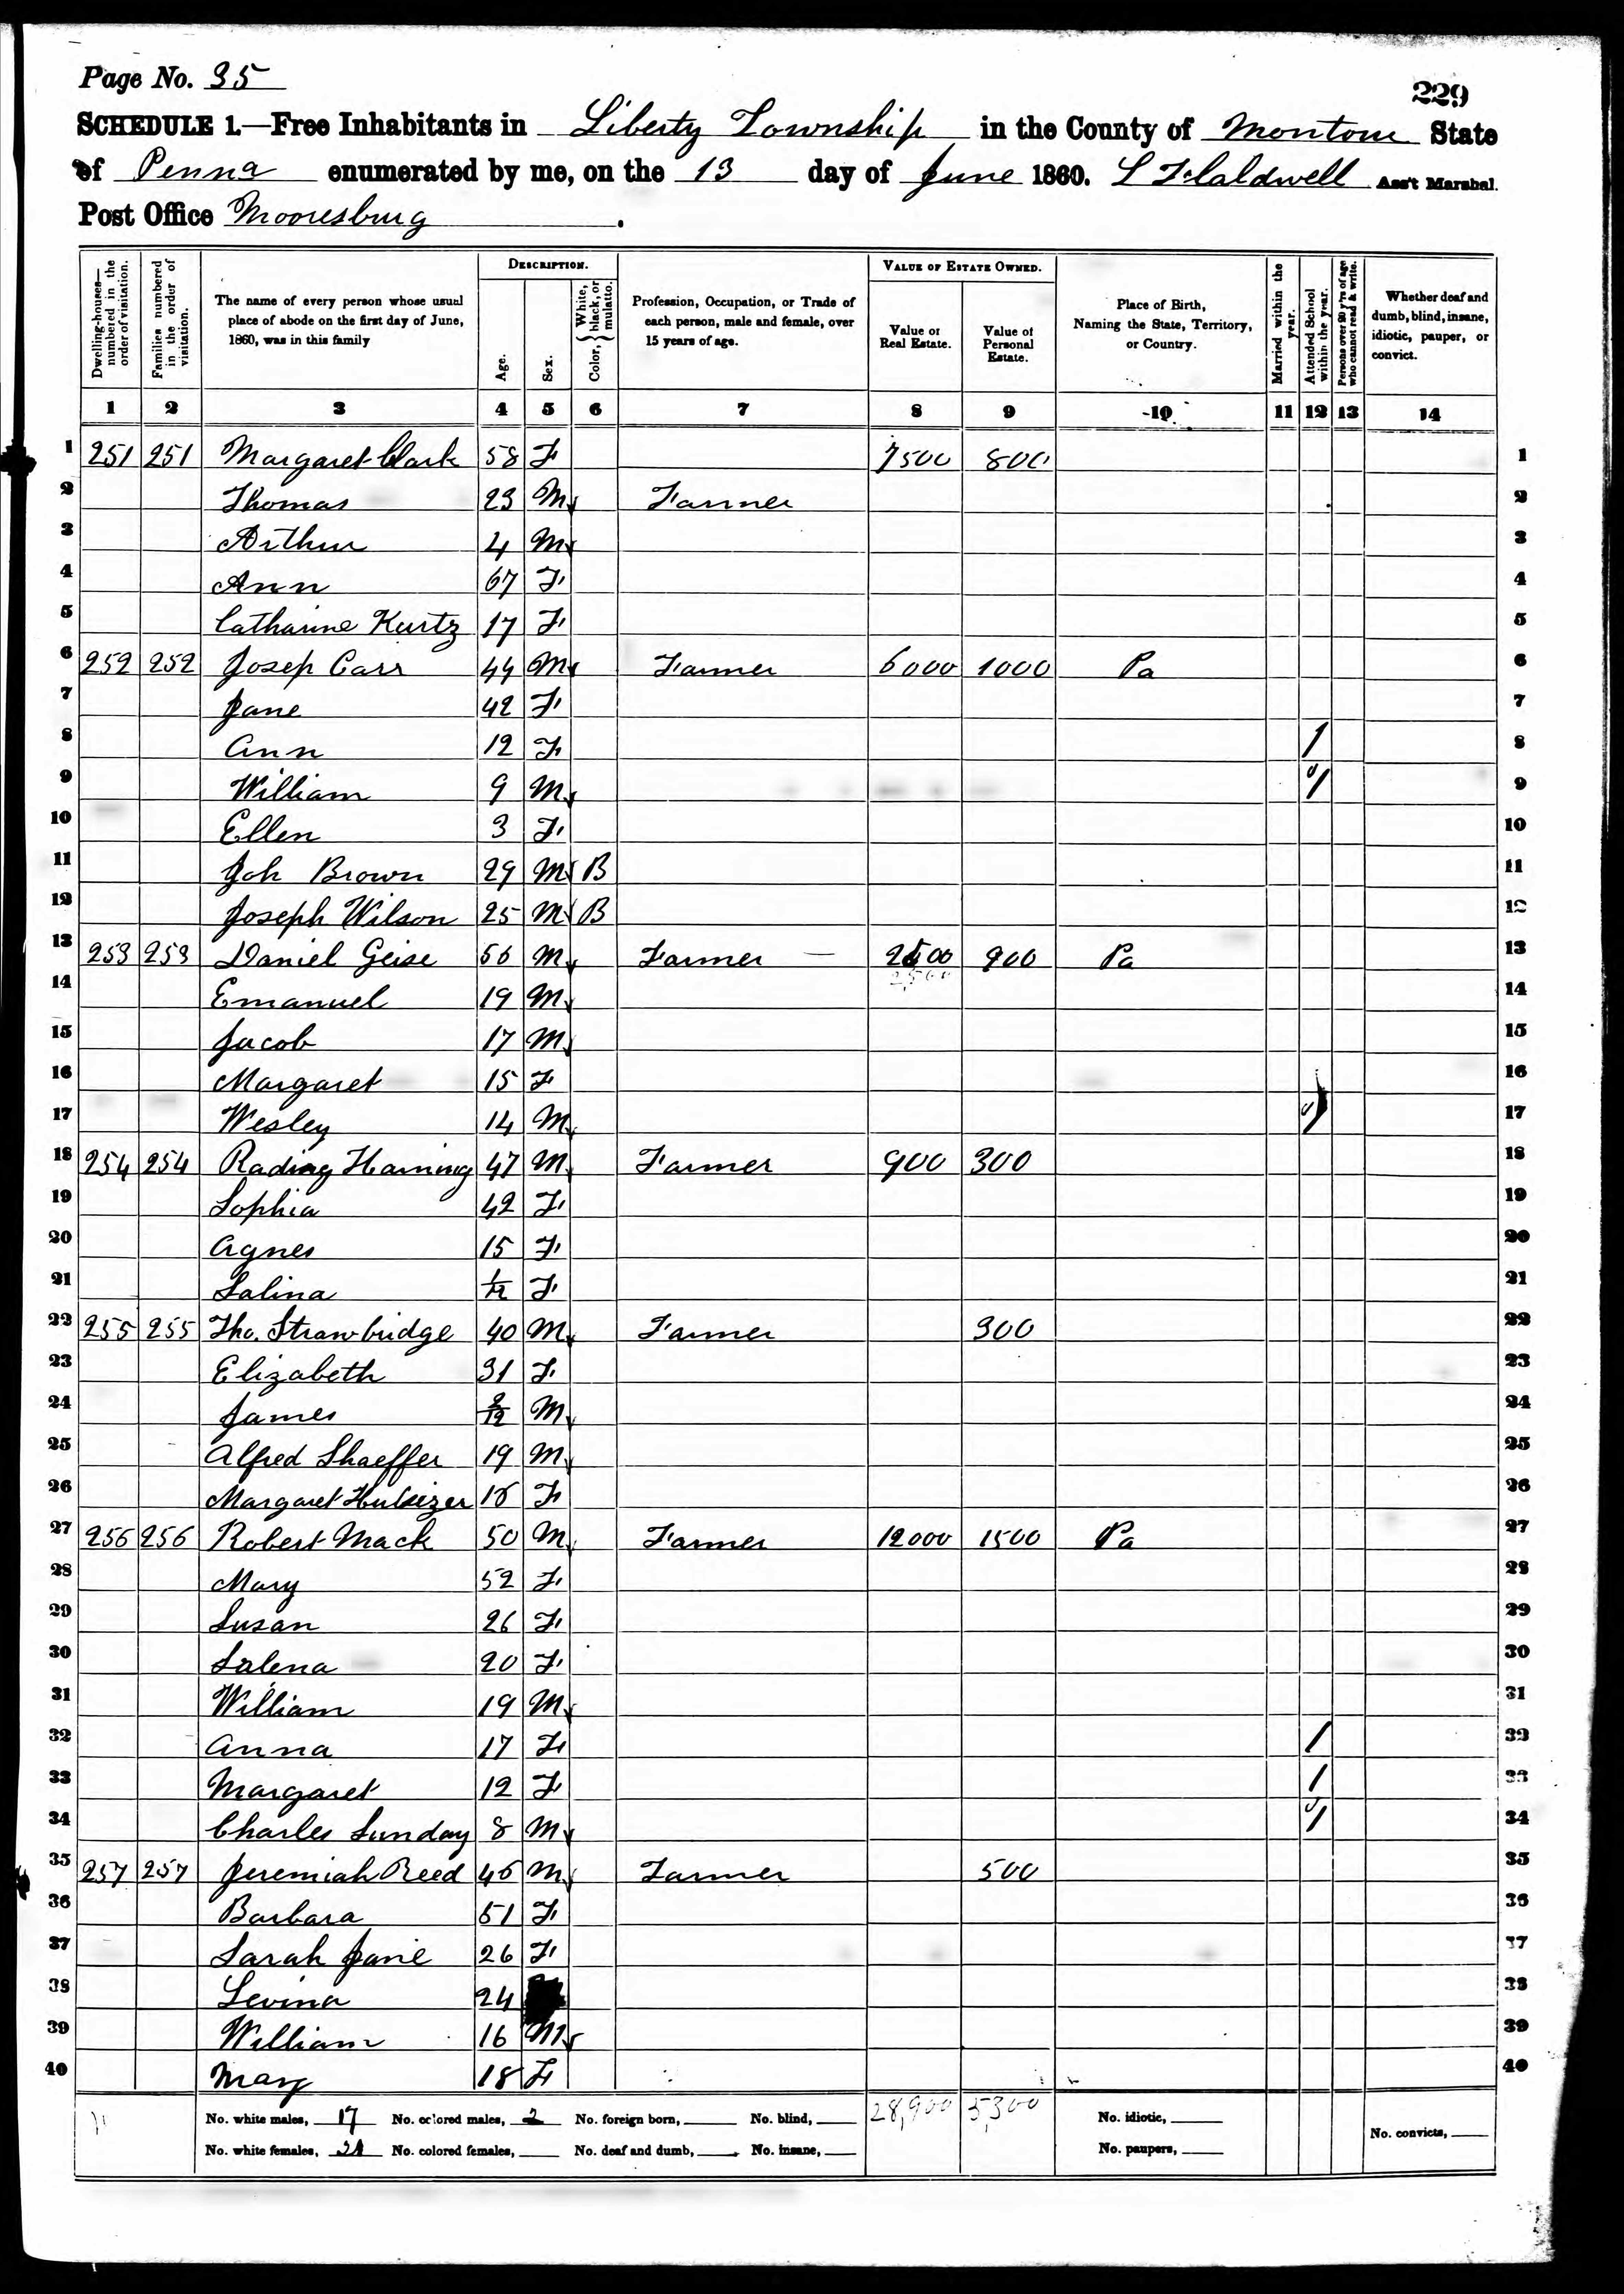 Page No. 35
229
SCHEDULE 1.—Free Inhabitants in Liberty Township in the County of Montour State
of Penna enumerated by me, on the 13 day of June 1860. Ass't Marshal.
Post Office Mooresburg.
DESCRIPTION. VALUE OF ESTATE OWNED.
Dwelling-houses—numbered in the order of visitation. Families numbered in the order of visitation. The name of every person whose usual place of abode on the first day of June, 1860, was in this family Age. Sex. Color, {White, black, or mulatto. Profession, Occupation, or Trade of each person, male and female, over 15 years of age. Value of Real Estate. Value of Personal Estate. Place of Birth, Naming the State, Territory, or Country. Married within the year. Attended School within the year. Persons over 20 y'rs of age who cannot read & write. Whether deaf and dumb, blind, insane, idiotic, pauper, or convict.
1 2 3 4 5 6 7 8 9 10 11 12 13 14
1 251 251 Margaret Clark 58 F 7500 800 1
2 Thomas 23 M Farmer 2
3 Arthur 4 M 3
4 Ann 67 F 4
5 Catharine Kurtz 17 F 5
6 252 252 Josep Carr 44 M Farmer 6000 1000 Pa 6
7 Jane 42 F 7
8 Ann 12 F / 8
9 William 9 M / 9
10 Ellen 3 F 10
11 Joh Brown 29 M B 11
12 Joseph Wilson 25 M B 12
13 253 253 Daniel Geise 56 M Farmer — 2500 900 Pa 13
2,500
14 Emanuel 19 M 14
15 Jacob 17 M 15
16 Margaret 15 F / 16
17 Wesley 14 M / 17
18 254 254 47 M Farmer 900 300 18
19 Sophia 42 F 19
20 Agnes 15 F 20
21 Salina 1/12 F 21
22 255 255 Tho. Strawbridge 40 M Farmer 300 22
23 Elizabeth 31 F 23
24 James M 24
25 Alfred Shaeffer 19 M 25
26 Margaret F 26
27 256 256 Robert Mack 50 M Farmer 12000 1500 Pa 27
28 Mary 52 F 28
29 Susan 26 F 29
30 Salena 20 F 30
31 William 19 M 31
32 Anna 17 F / 32
33 Margaret 12 F / 33
34 Charles Sunday 8 M / 34
35 257 257 Jeremiah Reed M Farmer 500 35
36 Barbara 51 F 36
37 Sarah Jane 26 F 37
38 Levina 24 38
39 William 16 M 39
40 Mary 18 F 40
No. white males, 17 No. colored males, 2 No. foreign born, No. blind, 28,900 5,300 No. idiotic,
No. white females, No. colored females, No. deaf and dumb, No. insane, No. paupers, No. convicts,